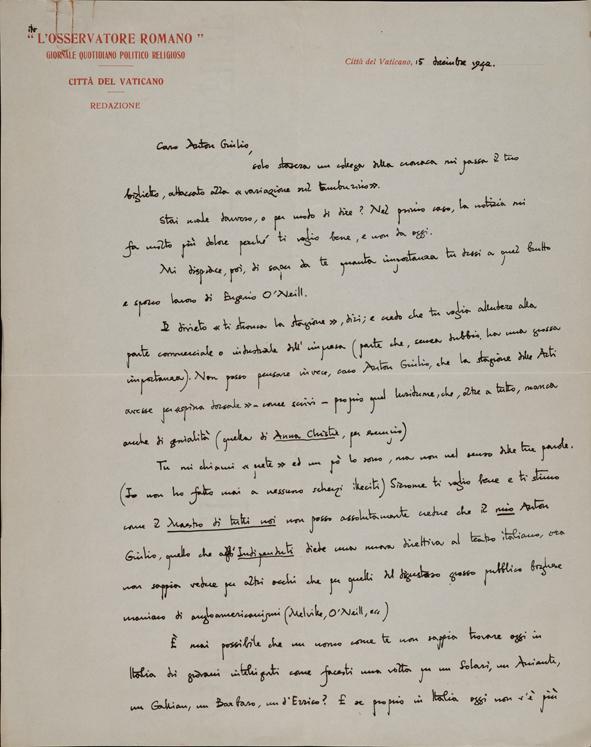 "L'OSSERVATORE ROMANO"
GIORNALE QUOTIDIANO POLITICO RELIGIOSO
CITTÀ DEL VATICANO
REDAZIONE
Città del Vaticano, 15 dicembre 1942.
Caro Anton Giulio,
solo stasera un collega della cronaca mi passa il tuo
biglietto, attaccato alla « variazione sul tamburino ».
Stai male davvero, o per modo di dire? Nel primo caso, la notizia mi
fa molto più dolore perché ti voglio bene, e non da oggi.
Mi dispiace, poi, di saper da te quanta importanza tu dessi a quel brutto
e sporco lavoro di Eugenio O'Neill.
Il divieto « ti stronca la stagione », dici; e credo che tu voglia alludere alla
parte commerciale o industriale dell'impresa (parte che, senza dubbio, ha una grossa
importanza). Non posso pensare invece, caro Anton Giulio, che la stagione delle Arti
avesse per « spina dorsale » - come scrivi - proprio quel , che, oltre a tutto, manca
anche di genialità (quella di Anna Christie, per esempio)
Tu mi chiami « prete » ed un pò lo sono, ma non nel senso delle tue parole.
(Io non ho fatto mai a nessuno scherzi illeciti) Siccome ti voglio bene e ti stimo
come il Maestro di tutti noi non posso assolutamente credere che il mio Anton
Giulio, quello che agl'Indipendenti diede una nuova direttiva al teatro italiano, ora
non sappia vedere per altri occhi che per quelli del disgustoso grosso pubblico borghese
maniaco di angloamericanismi (Melville, O'Neill, ecc)
È mai possibile che un uomo come te non sappia trovare oggi in
Italia dei giovani intelligenti come facesti una volta per un Solari, un Anianti,
un Gallian, un Barbaro, un d'Errico? E se proprio in Italia oggi non v'è più